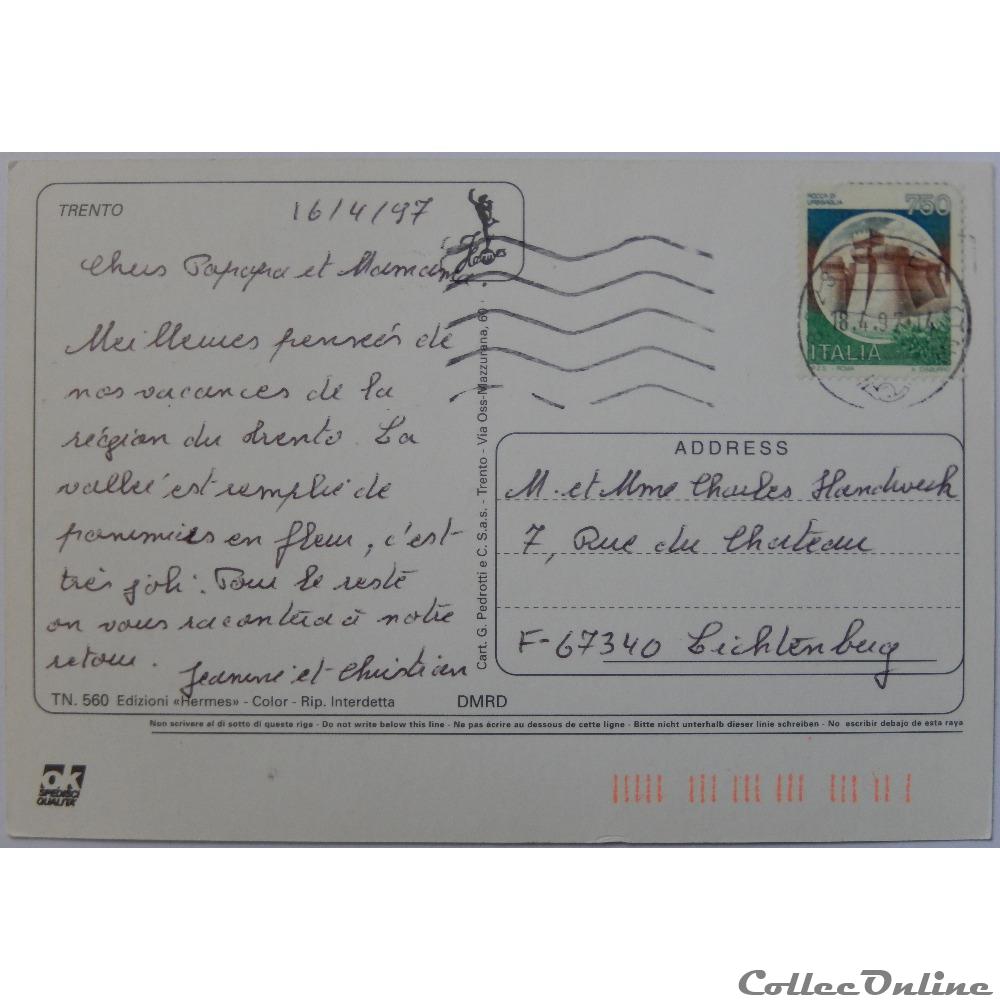 TRENTO
16/4/97
Hermes
Chers Papapa et Mamama.
Meilleures pensées de
nos vacances de la
région du Trento. La
vallée est remplie de
pommiers en fleur, c'est
très joli. Pour le reste
on vous racontera à notre
retour.
Jeanine et Christian
TN. 560 Edizioni «Hermes» - Color - Rip. Interdetta
DMRD
Cart. G. Pedrotti e C. S.a.s. - Trento - Via Oss-Mazzurana, 60
ROCCA DI
URBISAGLIA
750
18.4.97
14
ITALIA
I.P.Z.S. - ROMA
ADDRESS
M. et Mme Charles Handwerk
7, Rue du Chateau
F-67340 Lichtenberg
Non scrivere al di sotto di questa riga - Do not write below this line - Ne pas écrire au dessous de cette ligne - Bitte nicht unterhalb dieser linie schreiben - No escribir debajo de esta raya
ok
SPEDISCI
QUALITA'
CollecOnline